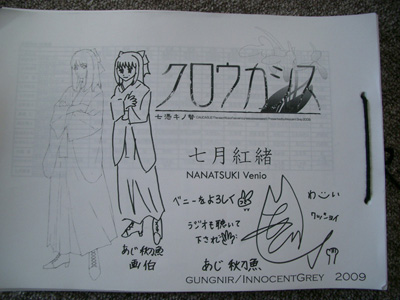 クロウカシス
七憑キノ贄
七月紅緒
NANATSUKI Venio
ベニーをよろしく
わーい
ワッショイ
ラジオも聴いて
下され
あじ秋刀魚
画伯
あじ 秋刀魚
GUNGNIR/INNOCENTGREY 2009